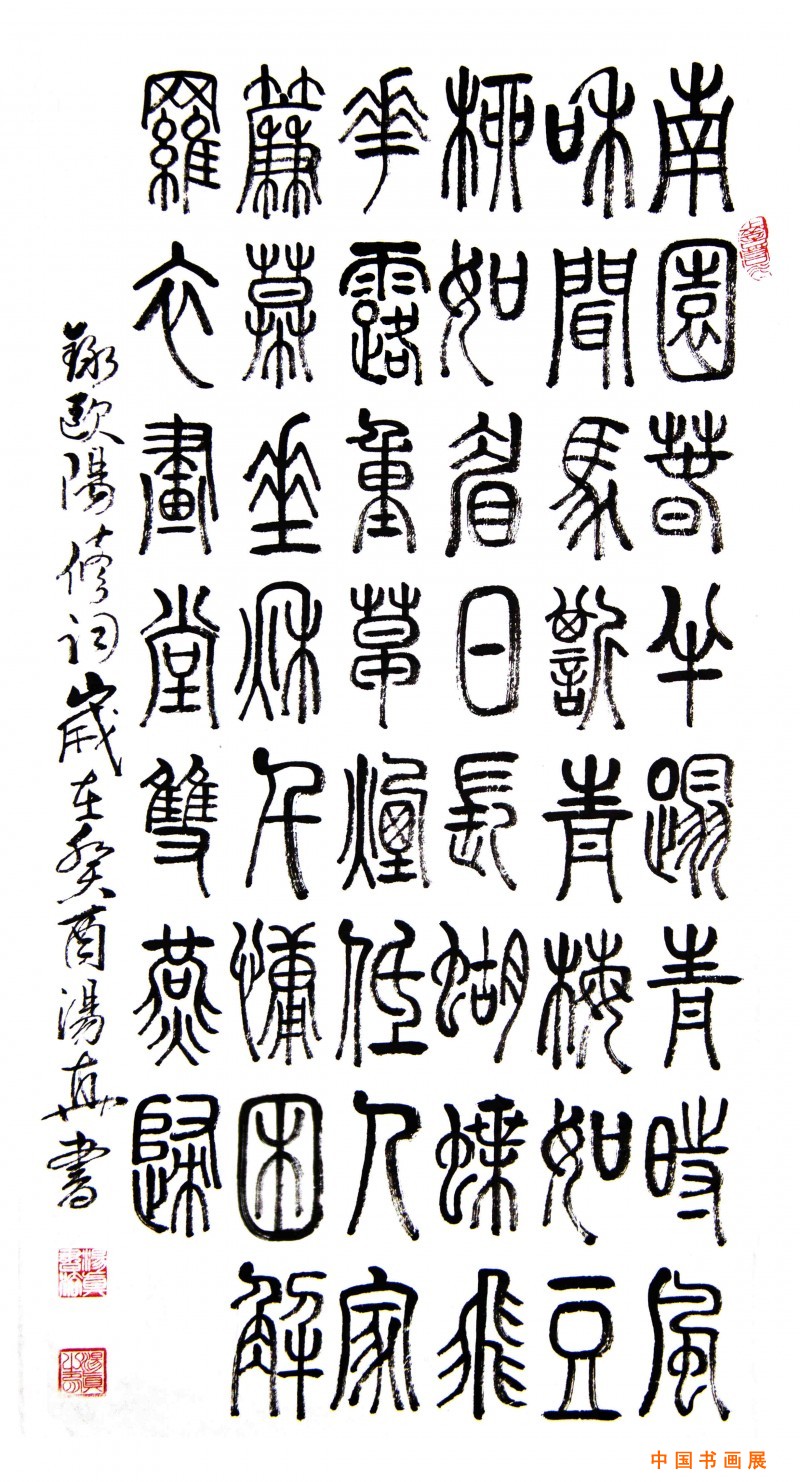 南園春半踏青時風
和聞馬嘶青梅如豆
柳如眉日長蝴蝶飛
花露重草煙低人家
簾幕垂秋千慵困解
羅衣畫堂雙燕歸
錄歐陽修詞歲在癸酉湯真書
中国书画展